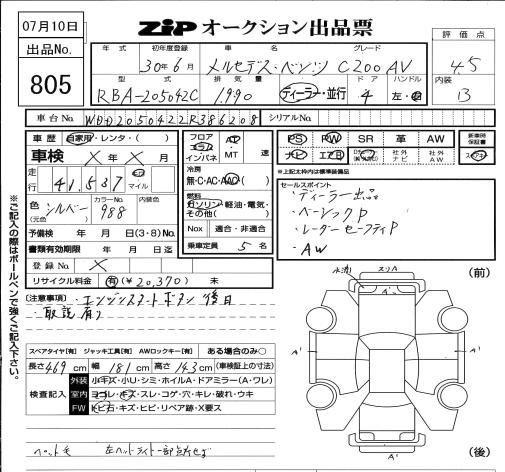 07月10日
出品No.
805
ZIP オークション出品票
評価点
4.5
内装
B
年式 初年度登録 車名 グレード
30年6月 メルセデス・ベンツ C200 AV
型式 排気量 ドア ハンドル
RBA-205042C 1,990 ディーラー・並行 4 左・右
車台No. WDD2050422R386208 シリアルNo.
車歴 自家用・レンタ・( )
車検 × 年 × 月
走行 41,537 km マイル
色 (元色) シルバー カラーNo. 988 内装色
予備検 年 月 日(3・8)No.
書類有効期限 年 月 日迄
登録No. ×
リサイクル料金 有(¥20,370) 未
フロア コラム インパネ AT MT 速
冷房 無・C・AC・AAC( )
燃料 ガソリン・軽油・電気・その他( )
Nox 適合・非適合
乗車定員 5 名
PS PW SR 革 AW 新車時保証書
ナビ エアB 社外ナビ 社外AW
※上記太枠内は標準装備品
セールスポイント
・ディーラー出品
・ベーシックP
・レーダーセーフティP
・AW
[注意事項]・エンジンスタートボタン 後日
・取説有り
スペアタイヤ[有] ジャッキ工具[有] AWロックキー[有] ある場合のみ○
長さ 469 cm 幅 181 cm 高さ 143 cm (車検証上の寸法)
検査記入
外装 小キズ・小リ・シミ・ホイルA・ドアミラー(A・ワレ)
室内 ヨゴレ・キズ・スレ・コゲ・穴・キレ・破れ・ウキ
FW トビ石・キズ・ヒビ・リペア跡・X要ス
ペット毛 左ヘッドライト一部点灯せず
※ご記入の際はボールペンで強くご記入下さい。
水滴 スリA
(前)
A'
A'
A'
A'
(後)